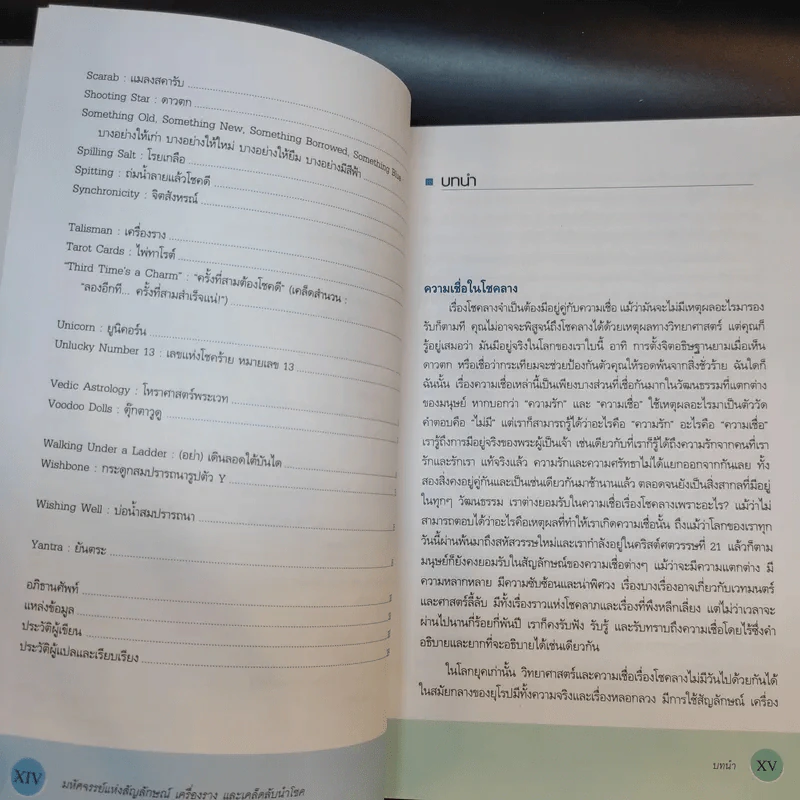 Scarab : แมลงสคารับ
Shooting Star : ดาวตก
Something Old, Something New, Something Borrowed, Something Blue
บางอย่างให้เก่า บางอย่างให้ใหม่ บางอย่างให้ยืม บางอย่างมีสีฟ้า
Spilling Salt : โรยเกลือ
Spitting : ถ่มน้ำลายแล้วโชคดี
Synchronicity : จิตสังหรณ์
Talisman : เครื่องราง
Tarot Cards : ไพ่ทาโรต์
"Third Time's a Charm" : "ครั้งที่สามต้องโชคดี" (เคล็ดสำนวน :
"ลองอีกที... ครั้งที่สามสำเร็จแน่!")
Unicorn : ยูนิคอร์น
Unlucky Number 13 : เลขแห่งโชคร้าย หมายเลข 13
Vedic Astrology : โหราศาสตร์พระเวท
Voodoo Dolls : ตุ๊กตาวูดู
Walking Under a Ladder : (อย่า) เดินลอดใต้บันได
Wishbone : กระดูกสมปรารถนารูปตัว Y
Wishing Well : บ่อน้ำสมปรารถนา
Yantra : ยันตระ
อภิธานศัพท์
แหล่งข้อมูล
ประวัติผู้เขียน
ประวัติผู้แปลและเรียบเรียง
XIV มหัศจรรย์แห่งสัญลักษณ์ เครื่องราง และเคล็ดลับนำโชค
บทนำ
ความเชื่อในโชคลาง
เรื่องโชคลางจำเป็นต้องมีอยู่คู่กับความเชื่อ แม้ว่ามันจะไม่มีเหตุผลอะไรมารอง
รับก็ตามที คุณไม่อาจจะพิสูจน์ถึงโชคลางได้ด้วยเหตุผลทางวิทยาศาสตร์ แต่คุณก็
รู้อยู่เสมอว่า มันมีอยู่จริงในโลกของเราใบนี้ อาทิ การตั้งจิตอธิษฐานยามเมื่อเห็น
ดาวตก หรือเชื่อว่ากระเทียมจะช่วยป้องกันตัวคุณให้รอดพ้นจากสิ่งชั่วร้าย ฉันใดก็
ฉันนั้น เรื่องความเชื่อเหล่านี้เป็นเพียงบางส่วนที่เชื่อกันมากในวัฒนธรรมที่แตกต่าง
ของมนุษย์ หากบอกว่า "ความรัก" และ "ความเชื่อ" ใช้เหตุผลอะไรมาเป็นตัววัด
คำตอบคือ "ไม่มี" แต่เราก็สามารถรู้ได้ว่าอะไรคือ "ความรัก" อะไรคือ "ความเชื่อ"
เรารู้ถึงการมีอยู่จริงของพระผู้เป็นเจ้า เช่นเดียวกับที่เราก็รู้ได้ถึงความรักจากคนที่เรา
รักและรักเรา แท้จริงแล้ว ความรักและความศรัทธาไม่ได้แยกออกจากกันเลย ทั้ง
สองสิ่งคงอยู่คู่กันและเป็นเช่นเดียวกันมาช้านานแล้ว ตลอดจนยังเป็นสิ่งสากลที่มีอยู่
ในทุกๆ วัฒนธรรม เราต่างยอมรับในความเชื่อเรื่องโชคลางเพราะอะไร? แม้ว่าไม่
สามารถตอบได้ว่าอะไรคือเหตุผลที่ทำให้เราเกิดความเชื่อนั้น ถึงแม้ว่าโลกของเราทุก
วันนี้ผ่านพ้นมาถึงสหัสวรรษใหม่และเรากำลังอยู่ในคริสต์ศตวรรษที่ 21 แล้วก็ตาม
มนุษย์ก็ยังคงยอมรับในสัญลักษณ์ของความเชื่อต่างๆ แม้ว่าจะมีความแตกต่าง มี
ความหลากหลาย มีความซับซ้อนและน่าพิศวง เรื่องบางเรื่องอาจเกี่ยวกับเวทมนตร์
และศาสตร์ลี้ลับ มีทั้งเรื่องราวแห่งโชคลาภและเรื่องที่พึงหลีกเลี่ยง แต่ไม่ว่าเวลาจะ
ผ่านไปนานกี่ร้อยกี่พันปี เราก็คงรับฟัง รับรู้ และรับทราบถึงความเชื่อโดยไร้ซึ่งคำ
อธิบายและยากที่จะอธิบายได้เช่นเดียวกัน
ในโลกยุคเก่านั้น วิทยาศาสตร์และความเชื่อเรื่องโชคลางไม่มีวันไปด้วยกันได้
ในสมัยกลางของยุโรปมีทั้งความจริงและเรื่องหลอกลวง มีการใช้สัญลักษณ์ เครื่อง
บทนำ XV